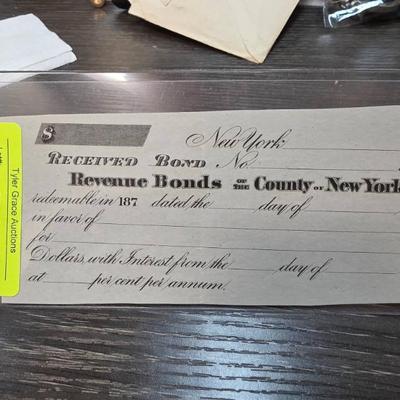 $
New York
RECEIVED BOND No.
Revenue Bonds OF THE County OF New York
redeemable in 187 dated the day of
in favor of
for
Dollars, with Interest from the day of
at per cent per annum.
Tyler Grace Auctions